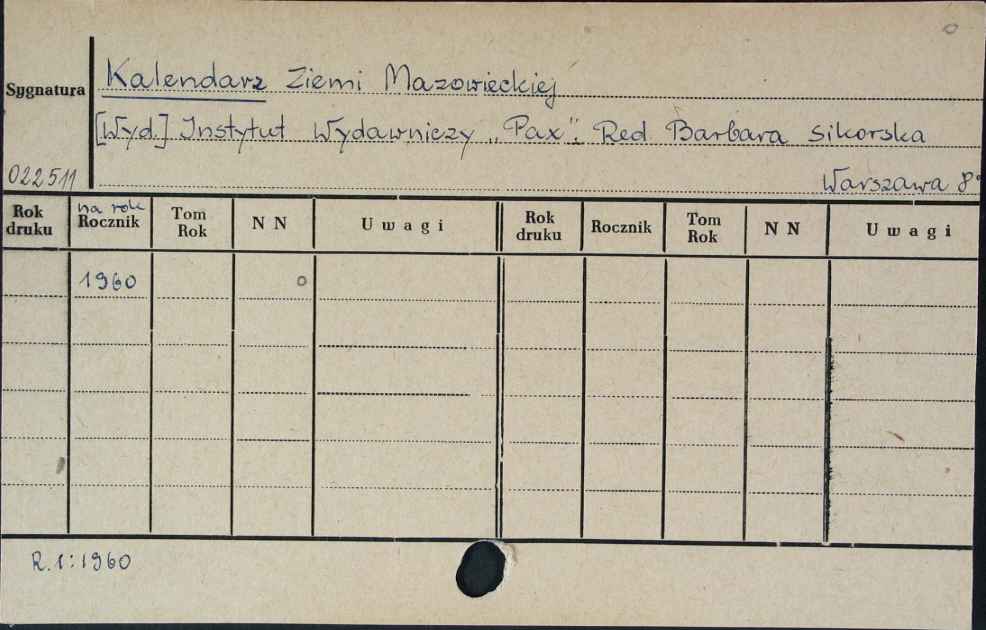 Kalendarz Ziemi Mazowieckiej
Sygnatura
[Wyd.] Instytut Wydawniczy „Pax". Red. Barbara Sikorska
022511
Warszawa 8°
Rok druku na rok Rocznik Tom Rok N N Uwagi Rok druku Rocznik Tom Rok N N Uwagi
1960
R. 1: 1960